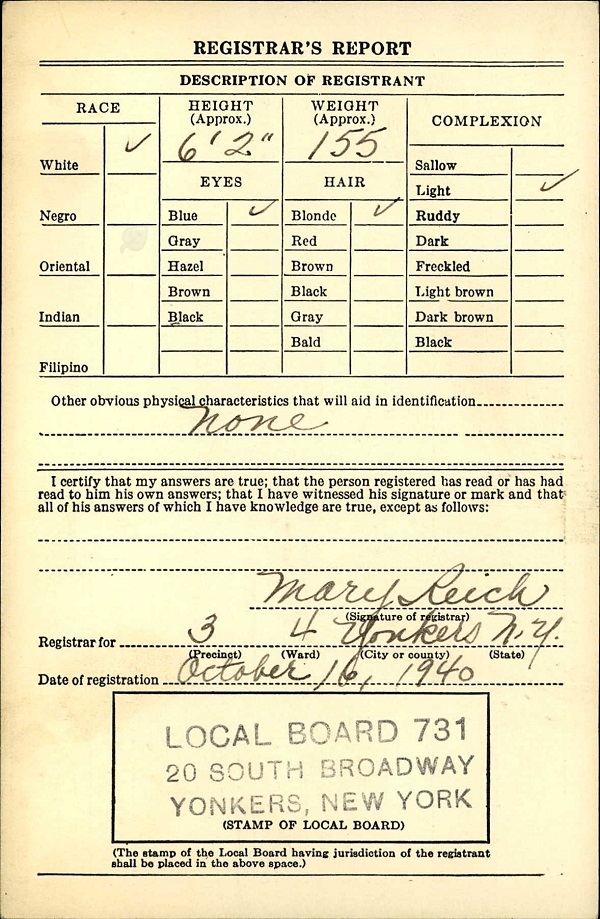 REGISTRAR'S REPORT
DESCRIPTION OF REGISTRANT
RACE
HEIGHT
(Approx.)
WEIGHT
(Approx.)
COMPLEXION
6' 2"
155
White ✓
EYES
HAIR
Sallow
Light ✓
Negro
Blue ✓
Blonde ✓
Ruddy
Gray
Red
Dark
Oriental
Hazel
Brown
Freckled
Brown
Black
Light brown
Indian
Black
Gray
Dark brown
Bald
Black
Filipino
Other obvious physical characteristics that will aid in identification
None
I certify that my answers are true; that the person registered has read or has had
read to him his own answers; that I have witnessed his signature or mark and that
all of his answers of which I have knowledge are true, except as follows:
Mary Reich
(Signature of registrar)
Registrar for 3 4 Yonkers N.Y.
(Precinct) (Ward) (City or county) (State)
Date of registration October 16, 1940
LOCAL BOARD 731
20 SOUTH BROADWAY
YONKERS, NEW YORK
(STAMP OF LOCAL BOARD)
(The stamp of the Local Board having jurisdiction of the registrant
shall be placed in the above space.)